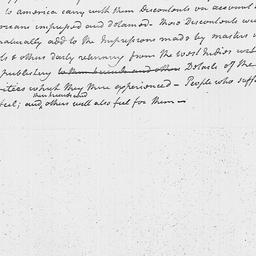 to america carry with them Discontents on account of
ericans impressed and detained. These Discontents will
naturally add to the Impressions made by masters of
ls & others daily returning from the West Indies with
publishing to their friends and others Details of the
ities which they there experienced – People who suffer
their friends and
feel; and others will also feel for them –